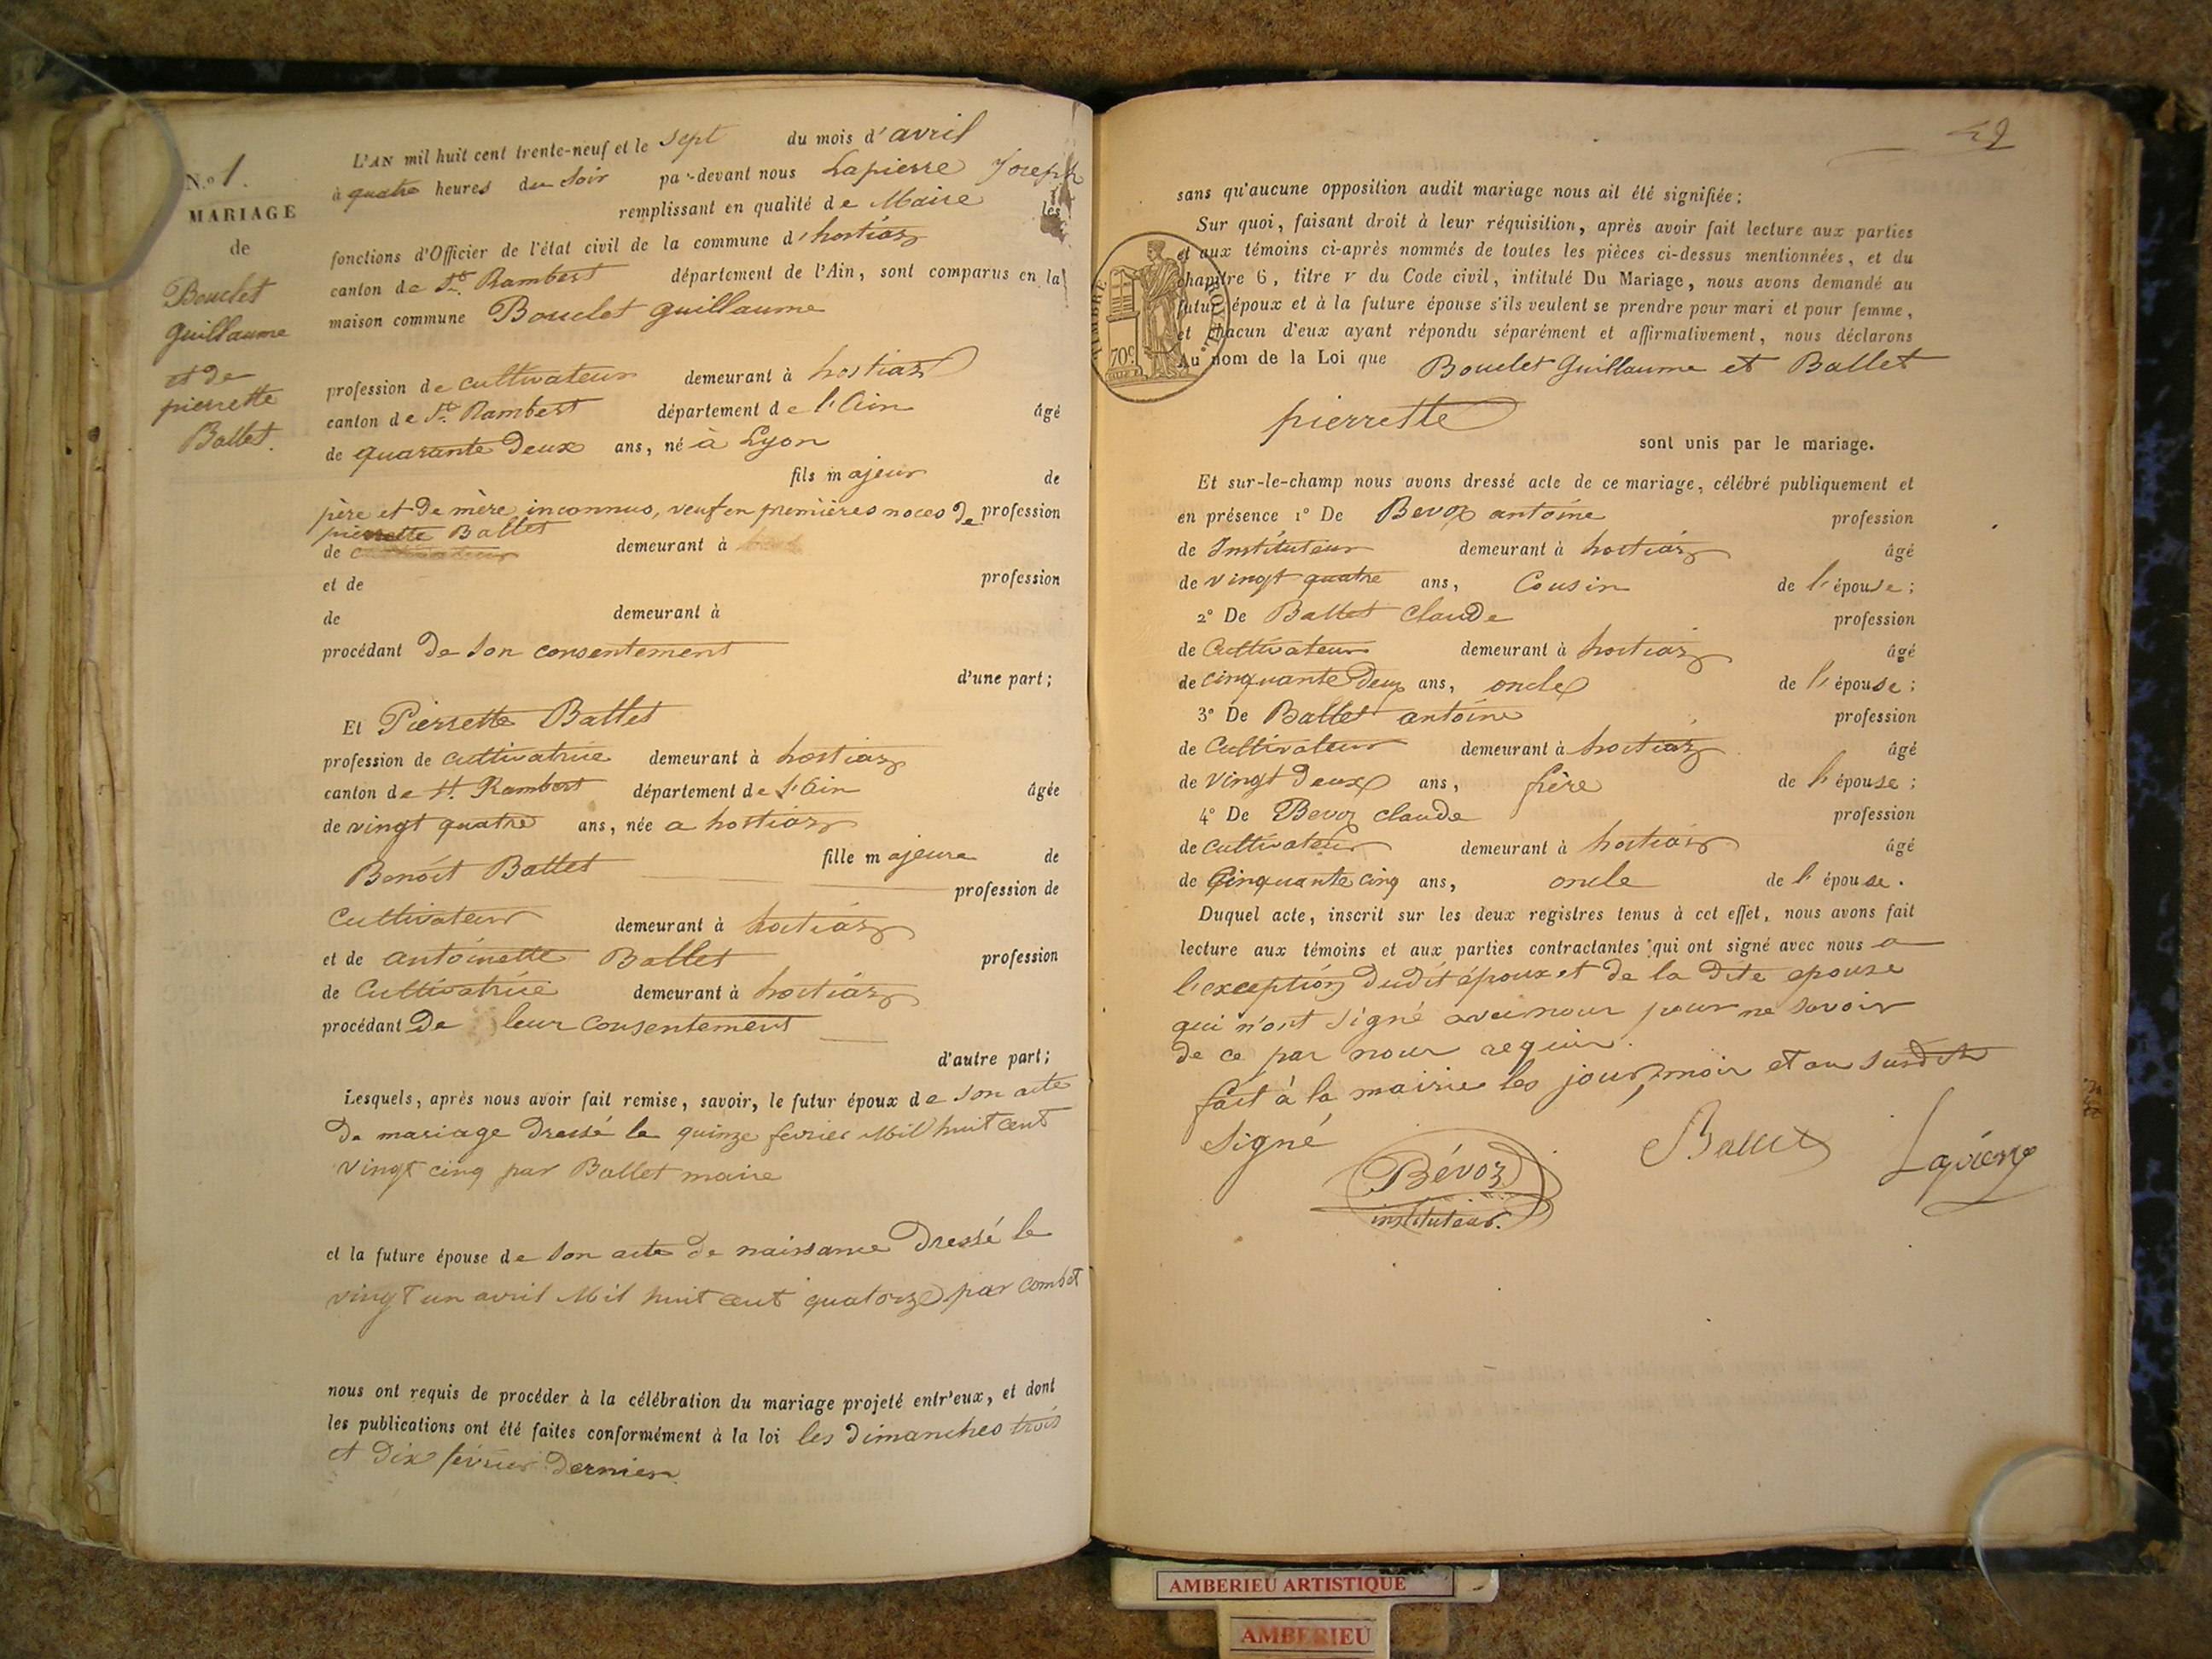 N.º 1.
MARIAGE
de
Bouclet
Guillaume
et de
pierrette
Ballet.
L'AN mil huit cent trente-neuf et le sept du mois d'avril
à quatre heures du soir par-devant nous Lapierre Joseph
remplissant en qualité de Maire les
fonctions d'Officier de l'état civil de la commune d'hostiaz
canton de St. Rambert département de l'Ain, sont comparus en la
maison commune Bouclet guillaume
profession de cultivateur demeurant à hostiaz
canton de St. Rambert département de l'Ain âgé
de quarante deux ans, né à Lyon
fils majeur de
père et de mère inconnus, veuf en premières noces de profession
pierrette Ballet
de demeurant à
et de profession
de demeurant à
procédant de son consentement
d'une part;
Et Pierrette Ballet
profession de cultivatrice demeurant à hostiaz
canton de St. Rambert département de l'Ain âgée
de vingt quatre ans, née a hostiaz
fille majeure de
Benoît Ballet profession de
Cultivateur demeurant à hostiaz
et de antoinette Ballet profession
de Cultivatrice demeurant à hostiaz
procédant De leur consentement
d'autre part;
Lesquels, après nous avoir fait remise, savoir, le futur époux de son acte
de mariage dressé le quinze fevrier Mil huit cent
vingt cinq par Ballet maire
et la future épouse de son acte de naissance dressé le
vingt un avril Mil huit cent quatorze par combet
nous ont requis de procéder à la célébration du mariage projeté entr'eux, et dont
les publications ont été faites conformément à la loi les dimanches trois
et dix février dernier.
49
sans qu'aucune opposition audit mariage nous ait été signifiée;
Sur quoi, faisant droit à leur réquisition, après avoir fait lecture aux parties
et aux témoins ci-après nommés de toutes les pièces ci-dessus mentionnées, et du
chapitre 6, titre v du Code civil, intitulé Du Mariage, nous avons demandé au
futur époux et à la future épouse s'ils veulent se prendre pour mari et pour femme,
et chacun d'eux ayant répondu séparément et affirmativement, nous déclarons
Au nom de la Loi que Bouclet Guillaume et Ballet
pierrette
sont unis par le mariage.
TIMBRE ROYAL
70c
Et sur-le-champ nous avons dressé acte de ce mariage, célébré publiquement et
en présence 1º De Bevoz antoine profession
de Instituteur demeurant à hostiaz âgé
de vingt quatre ans, Cousin de l'épouse;
2º De Ballet Claude profession
de Cultivateur demeurant à hostiaz âgé
de cinquante deux ans, oncle de l'épouse;
3º De Ballet antoine profession
de Cultivateur demeurant à hostiaz âgé
de vingt deux ans, frère de l'épouse;
4º De Bevoz claude profession
de cultivateur demeurant à hostiaz âgé
de Cinquante cinq ans, oncle de l'épouse.
Duquel acte, inscrit sur les deux registres tenus à cet effet, nous avons fait
lecture aux témoins et aux parties contractantes qui ont signé avec nous a
l'exception dudit époux et de la dite epouse
qui n'ont signé avec nous pour ne savoir
de ce par nous requis.
fait à la mairie les jour, mois et an susdits
Signé
Bévoz
instituteur.
Ballet
Lapierre
AMBERIEU ARTISTIQUE
AMBERIEU